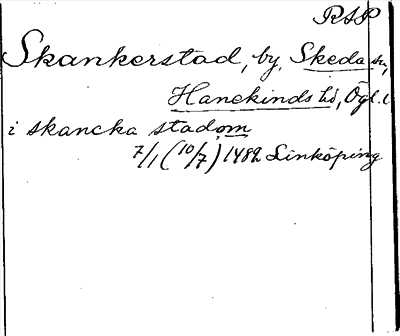 RAP
Skankerstad, by, Skeda sn,
Hanekinds hd, Ögl.
i skancka stadom
7/1 (10/7) 1489 Linköping